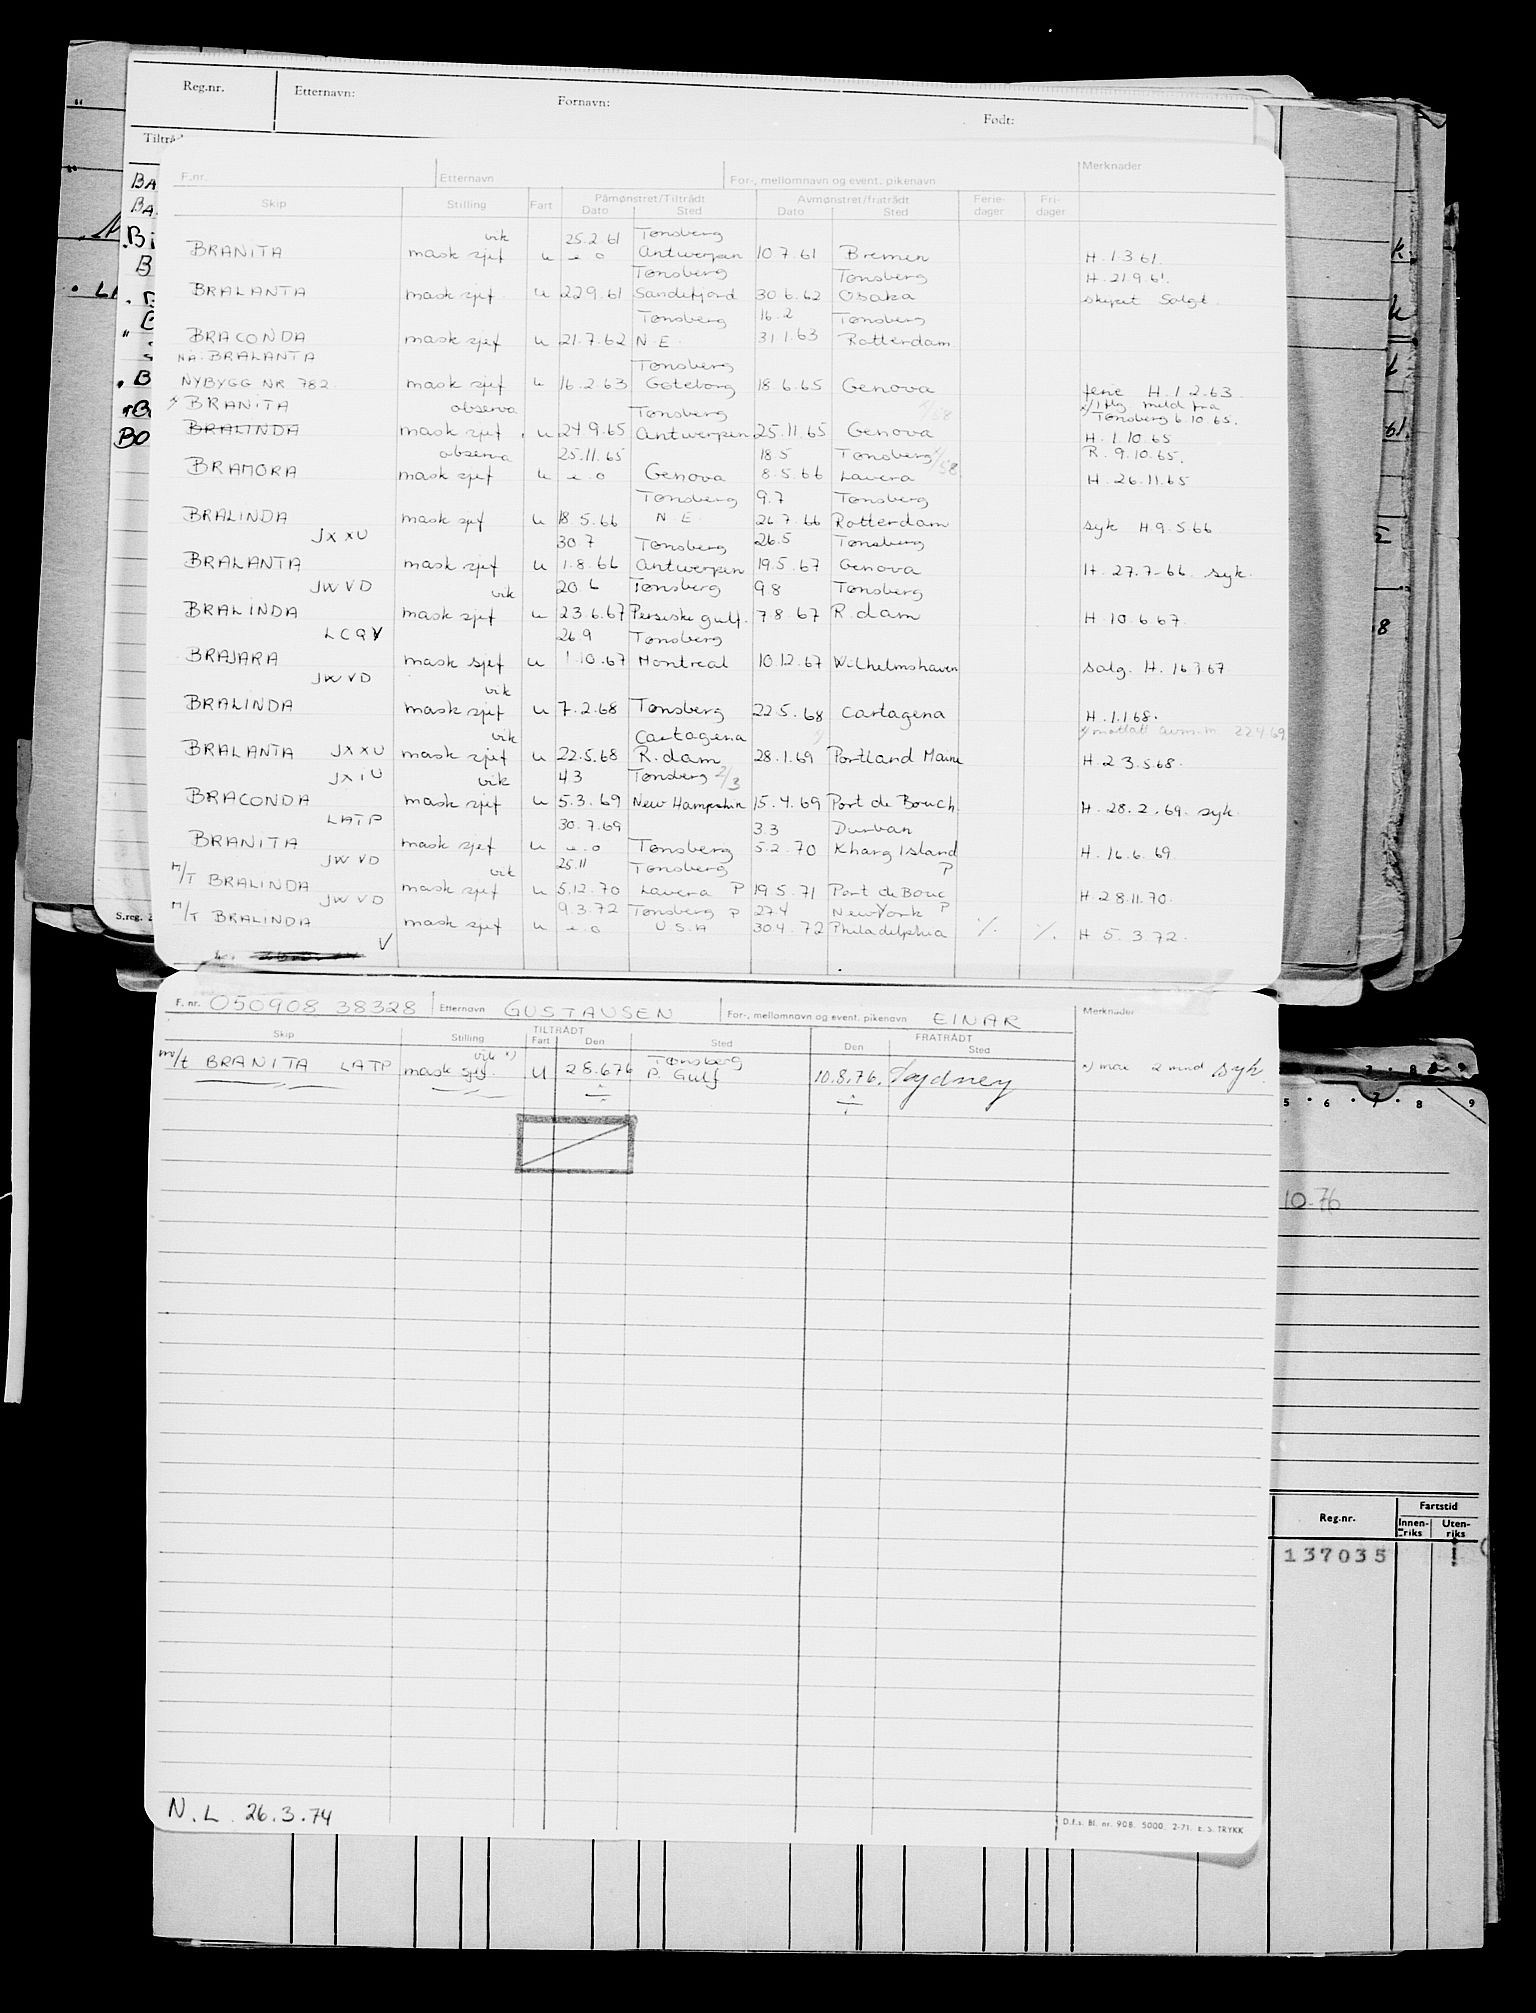 Reg.nr. Etternavn: Fornavn: Født:
F.nr. Etternavn For-, mellomnavn og event. pikenavn Merknader
Skip Stilling Fart Påmønstret/Tiltrådt Avmønstret/fratrådt Ferie- Fri-
Dato Sted Dato Sted dager dager
vik 25.2.61 Tønsberg
BRANITA mask sjef u Antwerpen 10.7.61 Bremen H. 1.3.61.
Tønsberg Tønsberg H. 21.9.61.
BRALANTA mask sjef u 22.9.61 Sandefjord 30.6.62 Osaka skipet Solgt.
Tønsberg 16.2 Tønsberg
BRACONDA mask sjef u 21.7.62 N.E. 31.1.63 Rotterdam
NÅ. BRALANTA Tønsberg
NYBYGG NR 782. mask sjef u 16.2.63 Göteborg 18.6.65 Genova ferie H. 1.2.63
x/ BRANITA observa Tønsberg x/Iflg meld fra Tønsberg 6.10.65.
BRALINDA mask sjef u 24.9.65 Antwerpen 25.11.65 Genova H. 1.10.65
observa 25.11.65 18.5 Tønsberg R. 9.10.65.
BRAMORA mask sjef u Genova 8.5.66 Lavera H. 26.11.65
Tønsberg 9.7 Tønsberg
BRALINDA mask sjef u 18.5.66 N.E. 26.7.66 Rotterdam syk H.9.5.66
JXXU 30.7 Tønsberg 26.5 Tønsberg
BRALANTA mask sjef u 1.8.66 Antwerpen 19.5.67 Genova H. 27.7.66 syk.
JWVD vik 20.6 Tønsberg 9.8 Tønsberg
BRALINDA mask sjef u 23.6.67 Persiske gulf. 7.8.67 R.dam H. 10.6.67.
LCQV 26.9 Tønsberg
BRAJARA mask sjef u 1.10.67 Montreal 10.12.67 Wilhelmshaven
JWVD vik
BRALINDA mask sjef u 7.2.68 Tønsberg 22.5.68 Cartagena H. 1.1.68.
vik Cartagena
BRALANTA JXXU mask sjef u 22.5.68 R.dam 28.1.69 Portland Maine H. 23.5.68.
JXIU vik 4.3 Tønsberg 2/3
BRACONDA mask sjef u 5.3.69 New Hampshire 15.4.69 Port de Bouch H. 28.2.69. syk.
LATP 30.7.69 3.3 Durban
BRANITA mask sjef u Tønsberg 5.2.70 Kharg Island H. 16.6.69
JWVD vik 25.11 Tønsberg P
M/T BRALINDA mask sjef u 5.12.70 Lavera P 19.5.71 Port de Bouc H. 28.11.70.
JWVD 9.3.72 Tønsberg P 27.4 New York P
M/T BRALINDA mask sjef u USA 30.4.72 Philadelphia ./. ./. H 5.3.72.
F. nr. 050908 38328 Etternavn GUSTAVSEN For-, mellomnavn og event. pikenavn EINAR Merknader
Skip Stilling TILTRÅDT FRATRÅDT
Fart Den Sted Den Sted
vik x) Tønsberg
m/t BRANITA LATP mask sjef. U 28.6.76 P. Gulf 10.8.76. Sydney x) max 2 mnd syk.
10.76
Reg.nr. Fartstid
Innen-riks Uten-riks
137035
N.L. 26.3.74
D.f.s. Bl. nr. 908. 5000. 2-71. E. S. TRYKK